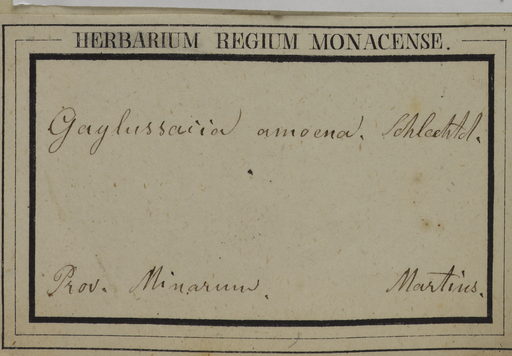 HERBARIUM REGIUM MONACENSE.
Gaylussacia amoena. Schlechtd.
Prov. Minarum. Martius.